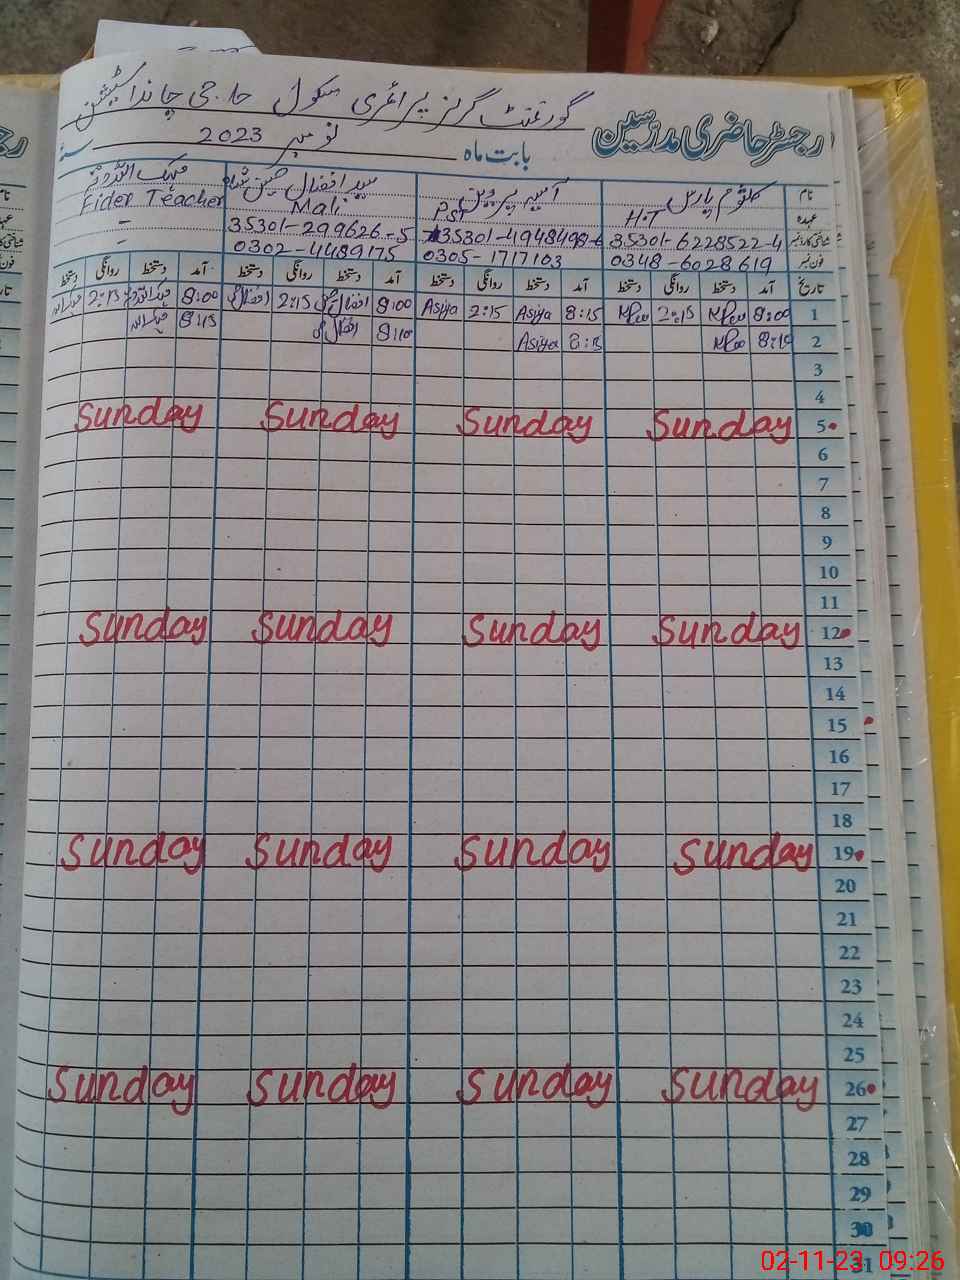 گورنمنٹ گرلز پرائمری سکول حاجی چاندا سٹیشن
رجسٹر حاضری مدرسین
بابت ماہ نومبر 2023
نام کلثوم پارس آسیہ پروین سید افضال حسین شاہ
عہدہ H.T PST Mali Fider Teacher
35301-6228522-4 35301-4948498-6 35301-299626-5 -
فون نمبر 0348-6028619 0305-1717103 0302-4489175 -
تاریخ آمد دستخط روانگی دستخط آمد دستخط روانگی دستخط آمد دستخط روانگی دستخط آمد دستخط روانگی دستخط
1 8:00 2:15 8:15 Asiya 2:15 Asiya 8:00 افضال 2:15 افضال 8:00 2:15
2 8:10 8:15 Asiya 8:10 افضال 8:15
3
4
5 Sunday Sunday Sunday Sunday
6
7
8
9
10
11
12 Sunday Sunday Sunday Sunday
13
14
15
16
17
18
19 Sunday Sunday Sunday Sunday
20
21
22
23
24
25
26 Sunday Sunday Sunday Sunday
27
28
29
30
31
02-11-23 09:26